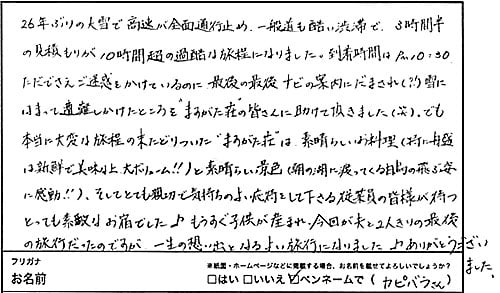 26年ぶりの大雪で高速が全面通行止め、一般道も酷い渋滞で、3時間半
の見積もりが10時間超の過酷な旅程になりました。到着時間はPm10:30
ただでさえご迷惑をかけているのに最後の最後ナビの案内にだまされ(?)雪に
はまって遭難しかけたところを"ますがた荘"の皆さんに助けて頂きました(笑)。でも
本当に大変な旅程の末たどりついた"ますがた荘"は、素晴らしいお料理(特に舟盛
は新鮮で美味な上大ボリューム!!)と素晴らしい景色(朝の湖に渡ってくる白鳥の飛ぶ姿
に感動!!)、そしてとても親切で気持ちのよい応対をして下さる従業員の皆様が待つ
とっても素敵なお宿でした♪もうすぐ子供が産まれ、今回が夫と2人きりの最後
の旅行だったのですが、一生の想い出となるよい旅行になりました♪ありがとうござい
ました。
フリガナ
お名前
※紙面・ホームページなどに掲載する場合、お名前を載せてよろしいでしょうか?
□はい □いいえ ☑ペンネームで(カピバラさん)